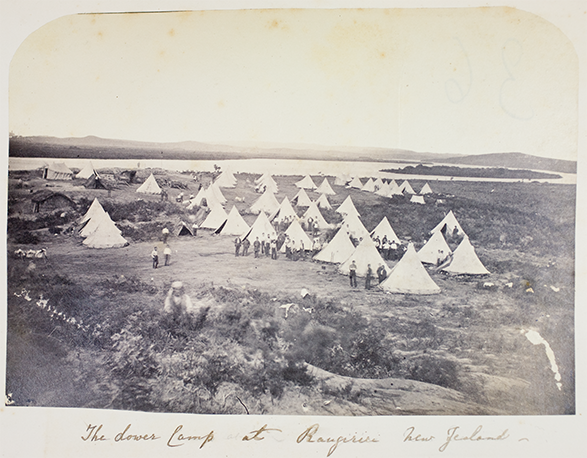 The Lower Camp at Rangiriri New Zealand